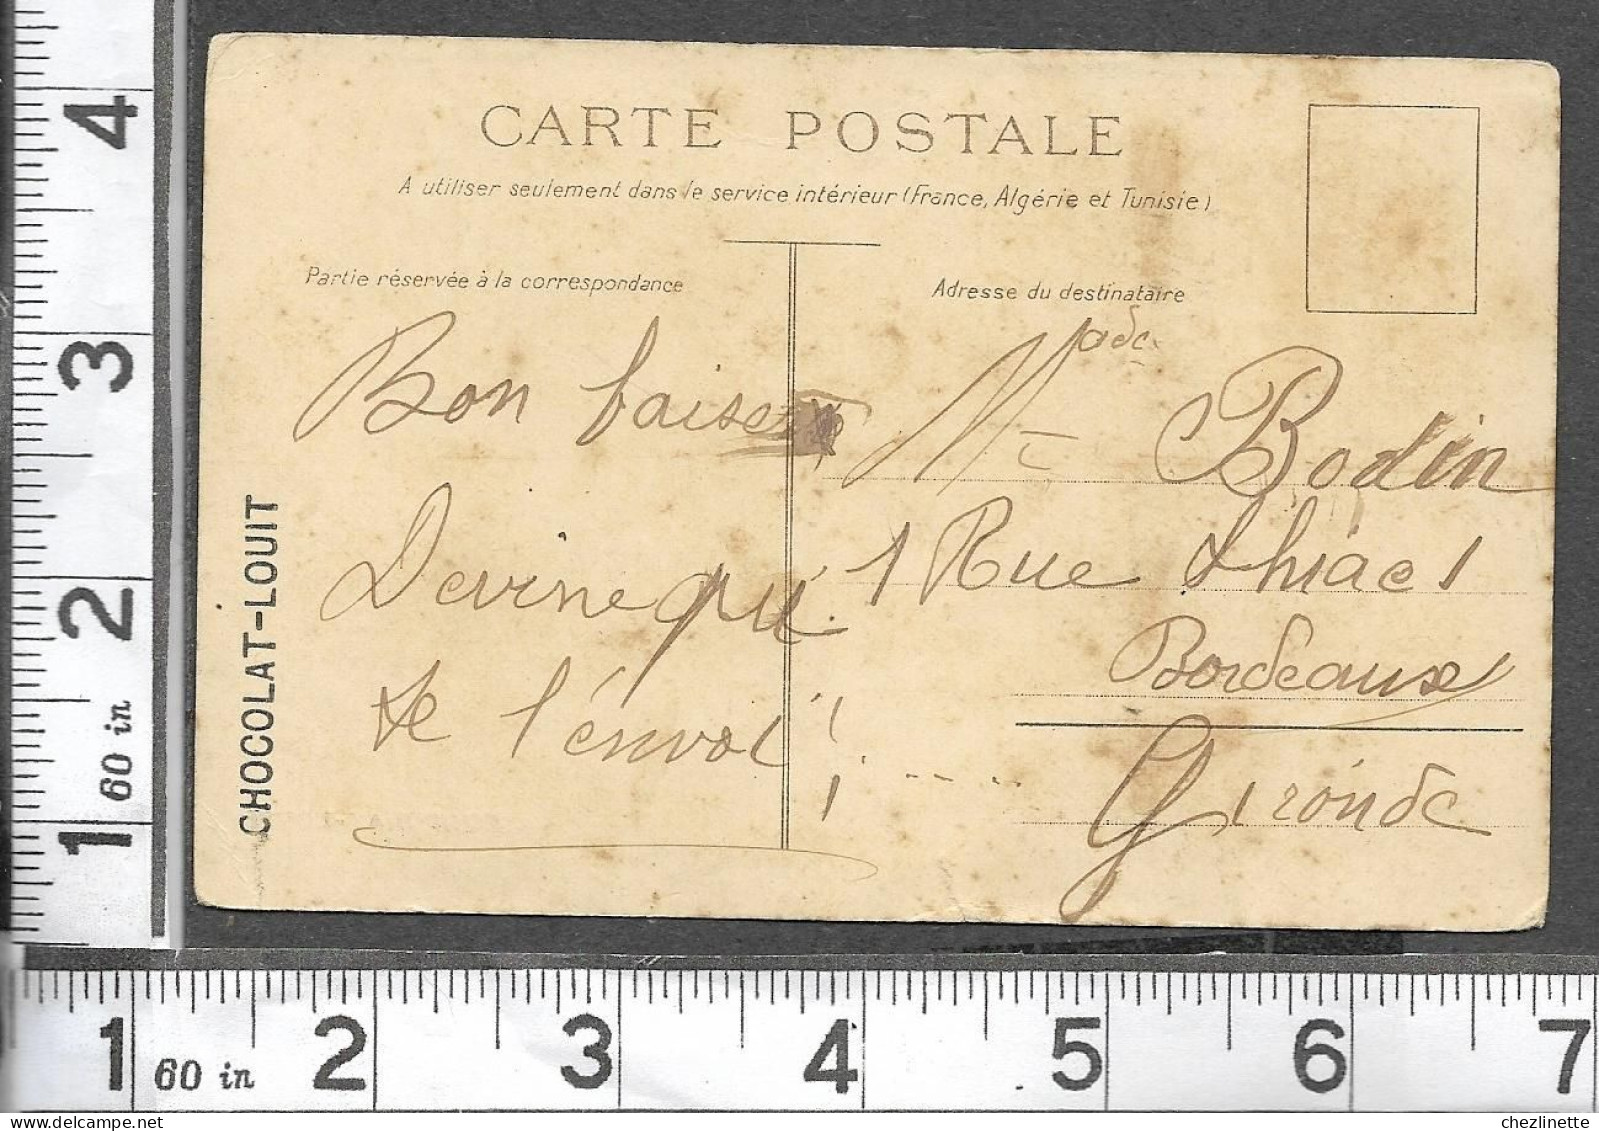 CARTE POSTALE
A utiliser seulement dans le service intérieur (France, Algérie et Tunisie)
Partie réservée à la correspondance
Adresse du destinataire
Bon baiser
Devine qui
te l'envoi!!
Made
M Bodin
1 Rue Lhiac 1
Bordeaux
Gironde
CHOCOLAT-LOUIT
4
3
2
60 in
1
1 60 in 2 3 4 5 6 7
chezlinette